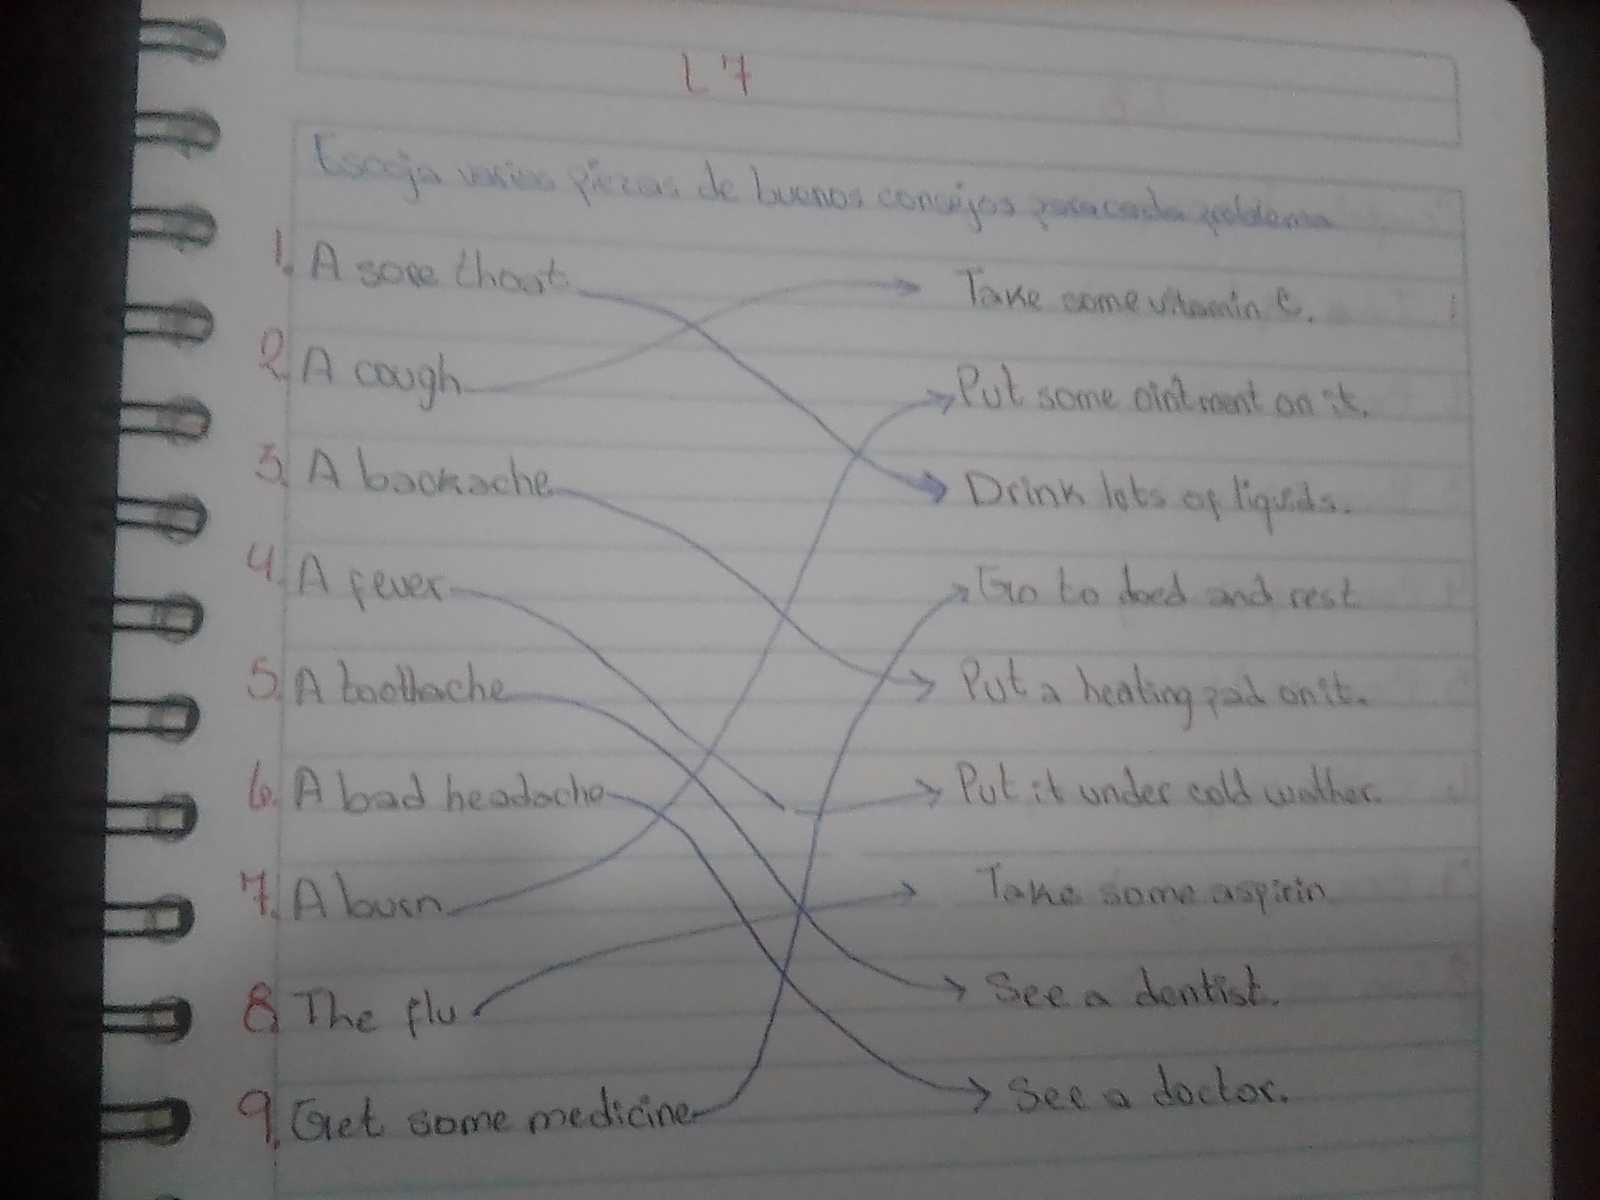 L 7
Escoja varias piezas de buenos consejos para cada
1. A sore thoat Take some vitamin C.
2. A cough Put some ointment on it.
3. A backache Drink lots of liquids.
4. A fever Go to and rest
5. A toothache Put a heating pad on it.
6. A bad headache Put it under cold wather.
7. A burn Take some aspirin
8. The flu See a dentist.
9. Get some medicine See a doctor.